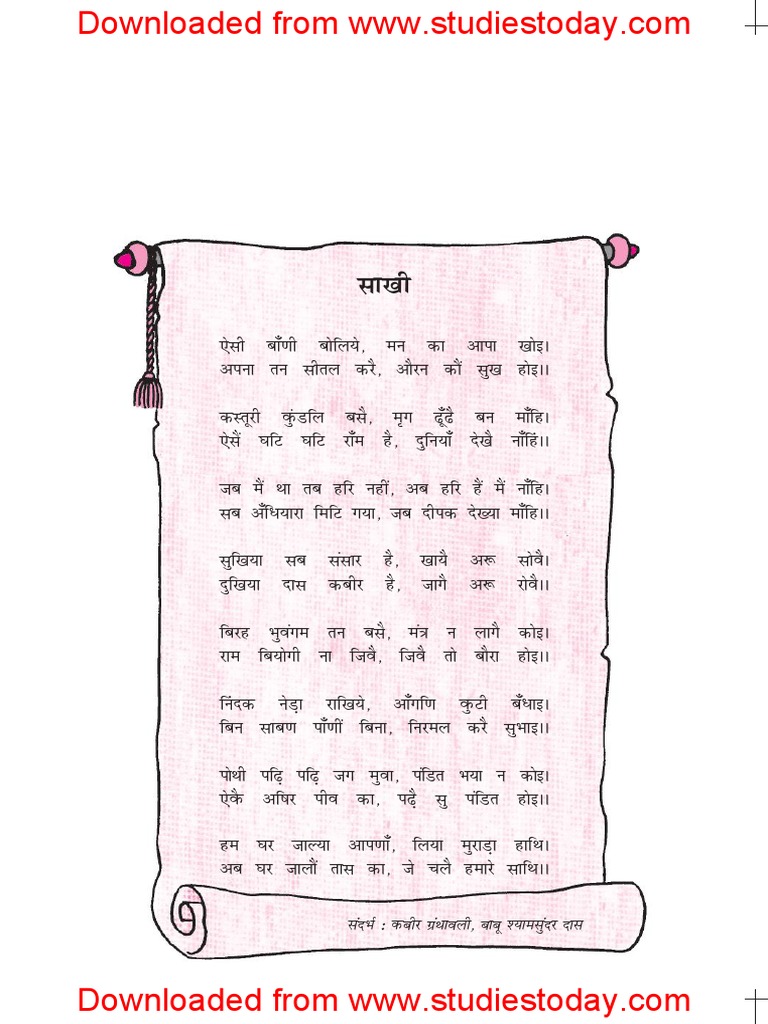 Downloaded from www.studiestoday.com
साखी
ऐसी बाँणी बोलिये, मन का आपा खोइ।
अपना तन सीतल करै, औरन कौं सुख होइ।।
कस्तूरी कुंडलि बसै, मृग ढूँढै बन माँहि।
ऐसैं घटि घटि राँम है, दुनियाँ देखै नाँहिं।।
जब मैं था तब हरि नहीं, अब हरि हैं मैं नाँहि।
सब अँधियारा मिटि गया, जब दीपक देख्या माँहि।।
सुखिया सब संसार है, खायै अरू सोवै।
दुखिया दास कबीर है, जागै अरू रोवै।।
बिरह भुवंगम तन बसै, मंत्र न लागै कोइ।
राम बियोगी ना जिवै, जिवै तो बौरा होइ।।
निंदक नेड़ा राखिये, आँगणि कुटी बँधाइ।
बिन साबण पाँणीं बिना, निरमल करै सुभाइ।।
पोथी पढ़ि पढ़ि जग मुवा, पंडित भया न कोइ।
ऐकै अषिर पीव का, पढ़ै सु पंडित होइ।।
हम घर जाल्या आपणाँ, लिया मुराड़ा हाथि।
अब घर जालौं तास का, जे चलै हमारे साथि।।
संदर्भ : कबीर ग्रंथावली, बाबू श्यामसुंदर दास
Downloaded from www.studiestoday.com